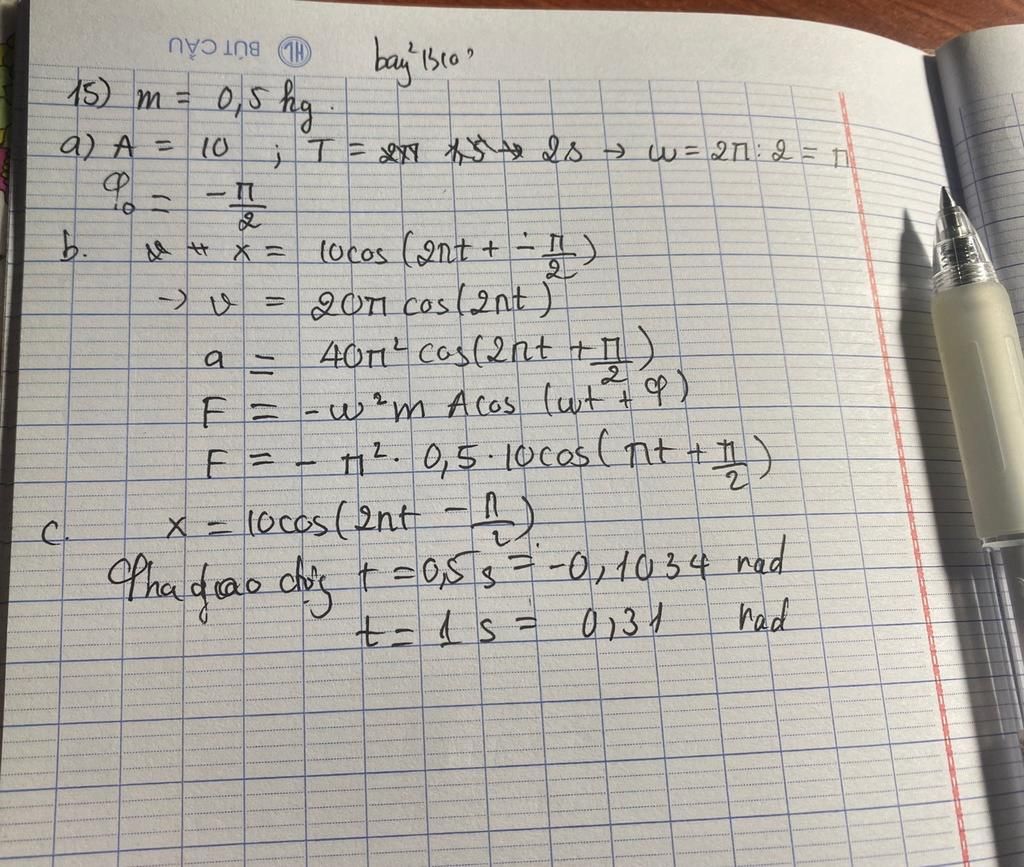 HL BÚT CẦU
15) m = 0,5 kg.
a) A = 10 ; T = 2s → ω = 2π : 2 = π
φ₀ = -π/2
b. x = 10cos(2πt + -π/2)
→ v = 20π cos(2πt)
a = 40π² cos(2πt + π/2)
F = -ω²m Acos (ωt + φ)
F = - π² . 0,5 . 10cos( πt + π/2)
c. x = 10cos(2πt - π/2).
Pha dao động t = 0,5 s = -0,1034 rad
t = 1 s = 0,31 rad